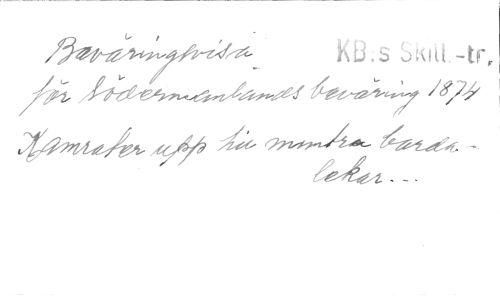 Beväringsvisa KB:s Skill.-tr.
för Södermanlands beväring 1874
Kamrater upp till muntra barda-
lekar...